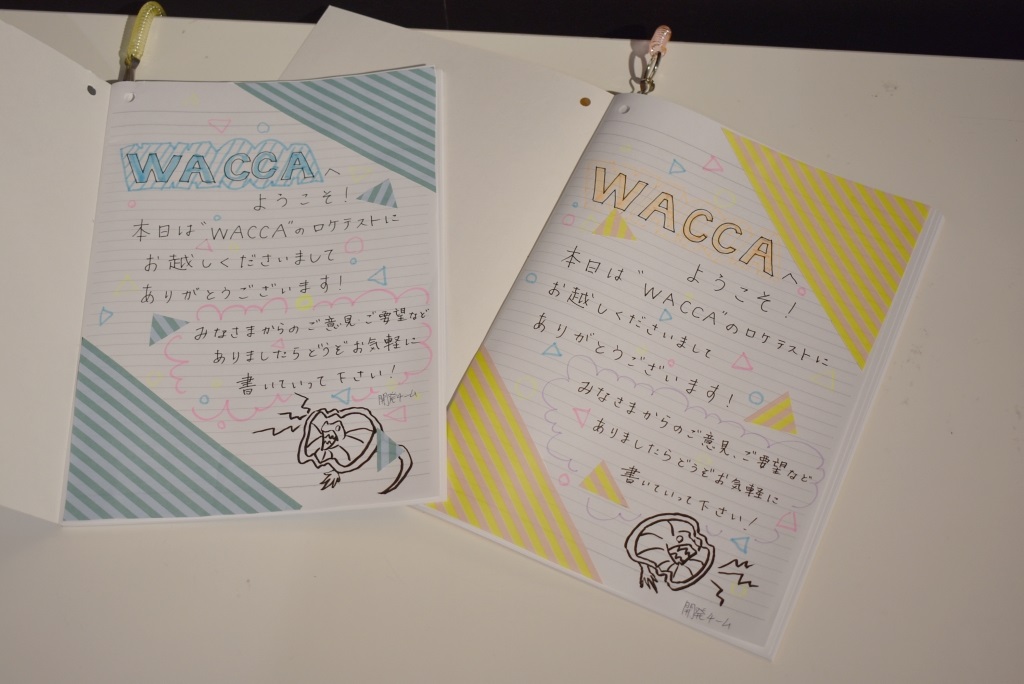 WACCAへ
ようこそ!
本日は"WACCA"のロケテストに
お越しくださいまして
ありがとうございます!
みなさまからのご意見・ご要望など
ありましたらどうぞお気軽に
書いていって下さい!
開発チーム
WACCAへ
ようこそ!
本日は"WACCA"のロケテストに
お越しくださいまして
ありがとうございます!
みなさまからのご意見、ご要望など
ありましたらどうぞお気軽に
書いていって下さい!
開発チーム